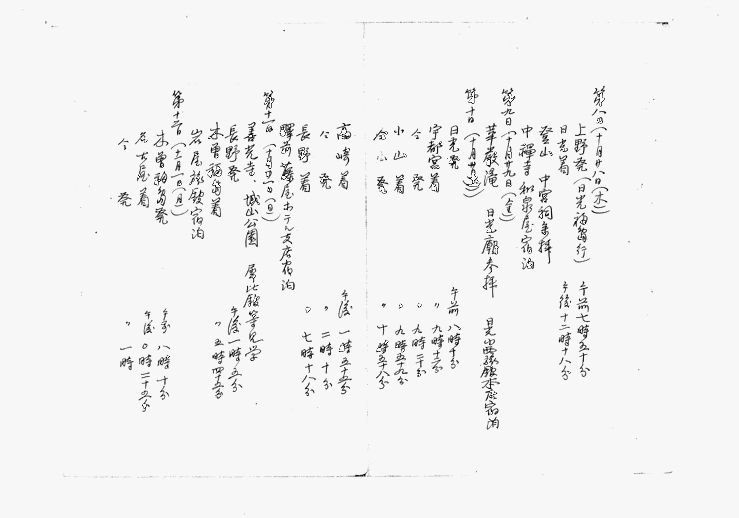 第八日(十月廿八日(木))
上野発(日光福島行) 午前七時五十分
日光着 午後十二時十八分
登山 中宮祠参拝
中禅寺 和泉屋宿泊
第九日(十月廿九日(金))
華厳滝 日光廟参拝 日光 旅館本店宿泊
第十日(十月卅日(土))
日光発 午前八時十分
宇都宮着 〃九時十二分
仝発 〃九時二十分
小山着 〃九時五十九分
仝 発 〃十時五十八分
高崎着 午後一時五十五分
仝発 〃二時十分
長野着 〃七時十八分
駅前藤屋ホテル支店宿泊
第十一日(十月卅一日(日))
善光寺、城山公園 等見学
長野発 午後一時五分
木曽福島着 〃五時四十五分
岩屋旅館宿泊
第十二日(十一月一日(月))
木曽福島発 午前八時十分
名古屋着 午後〇時二十五分
仝発 〃一時